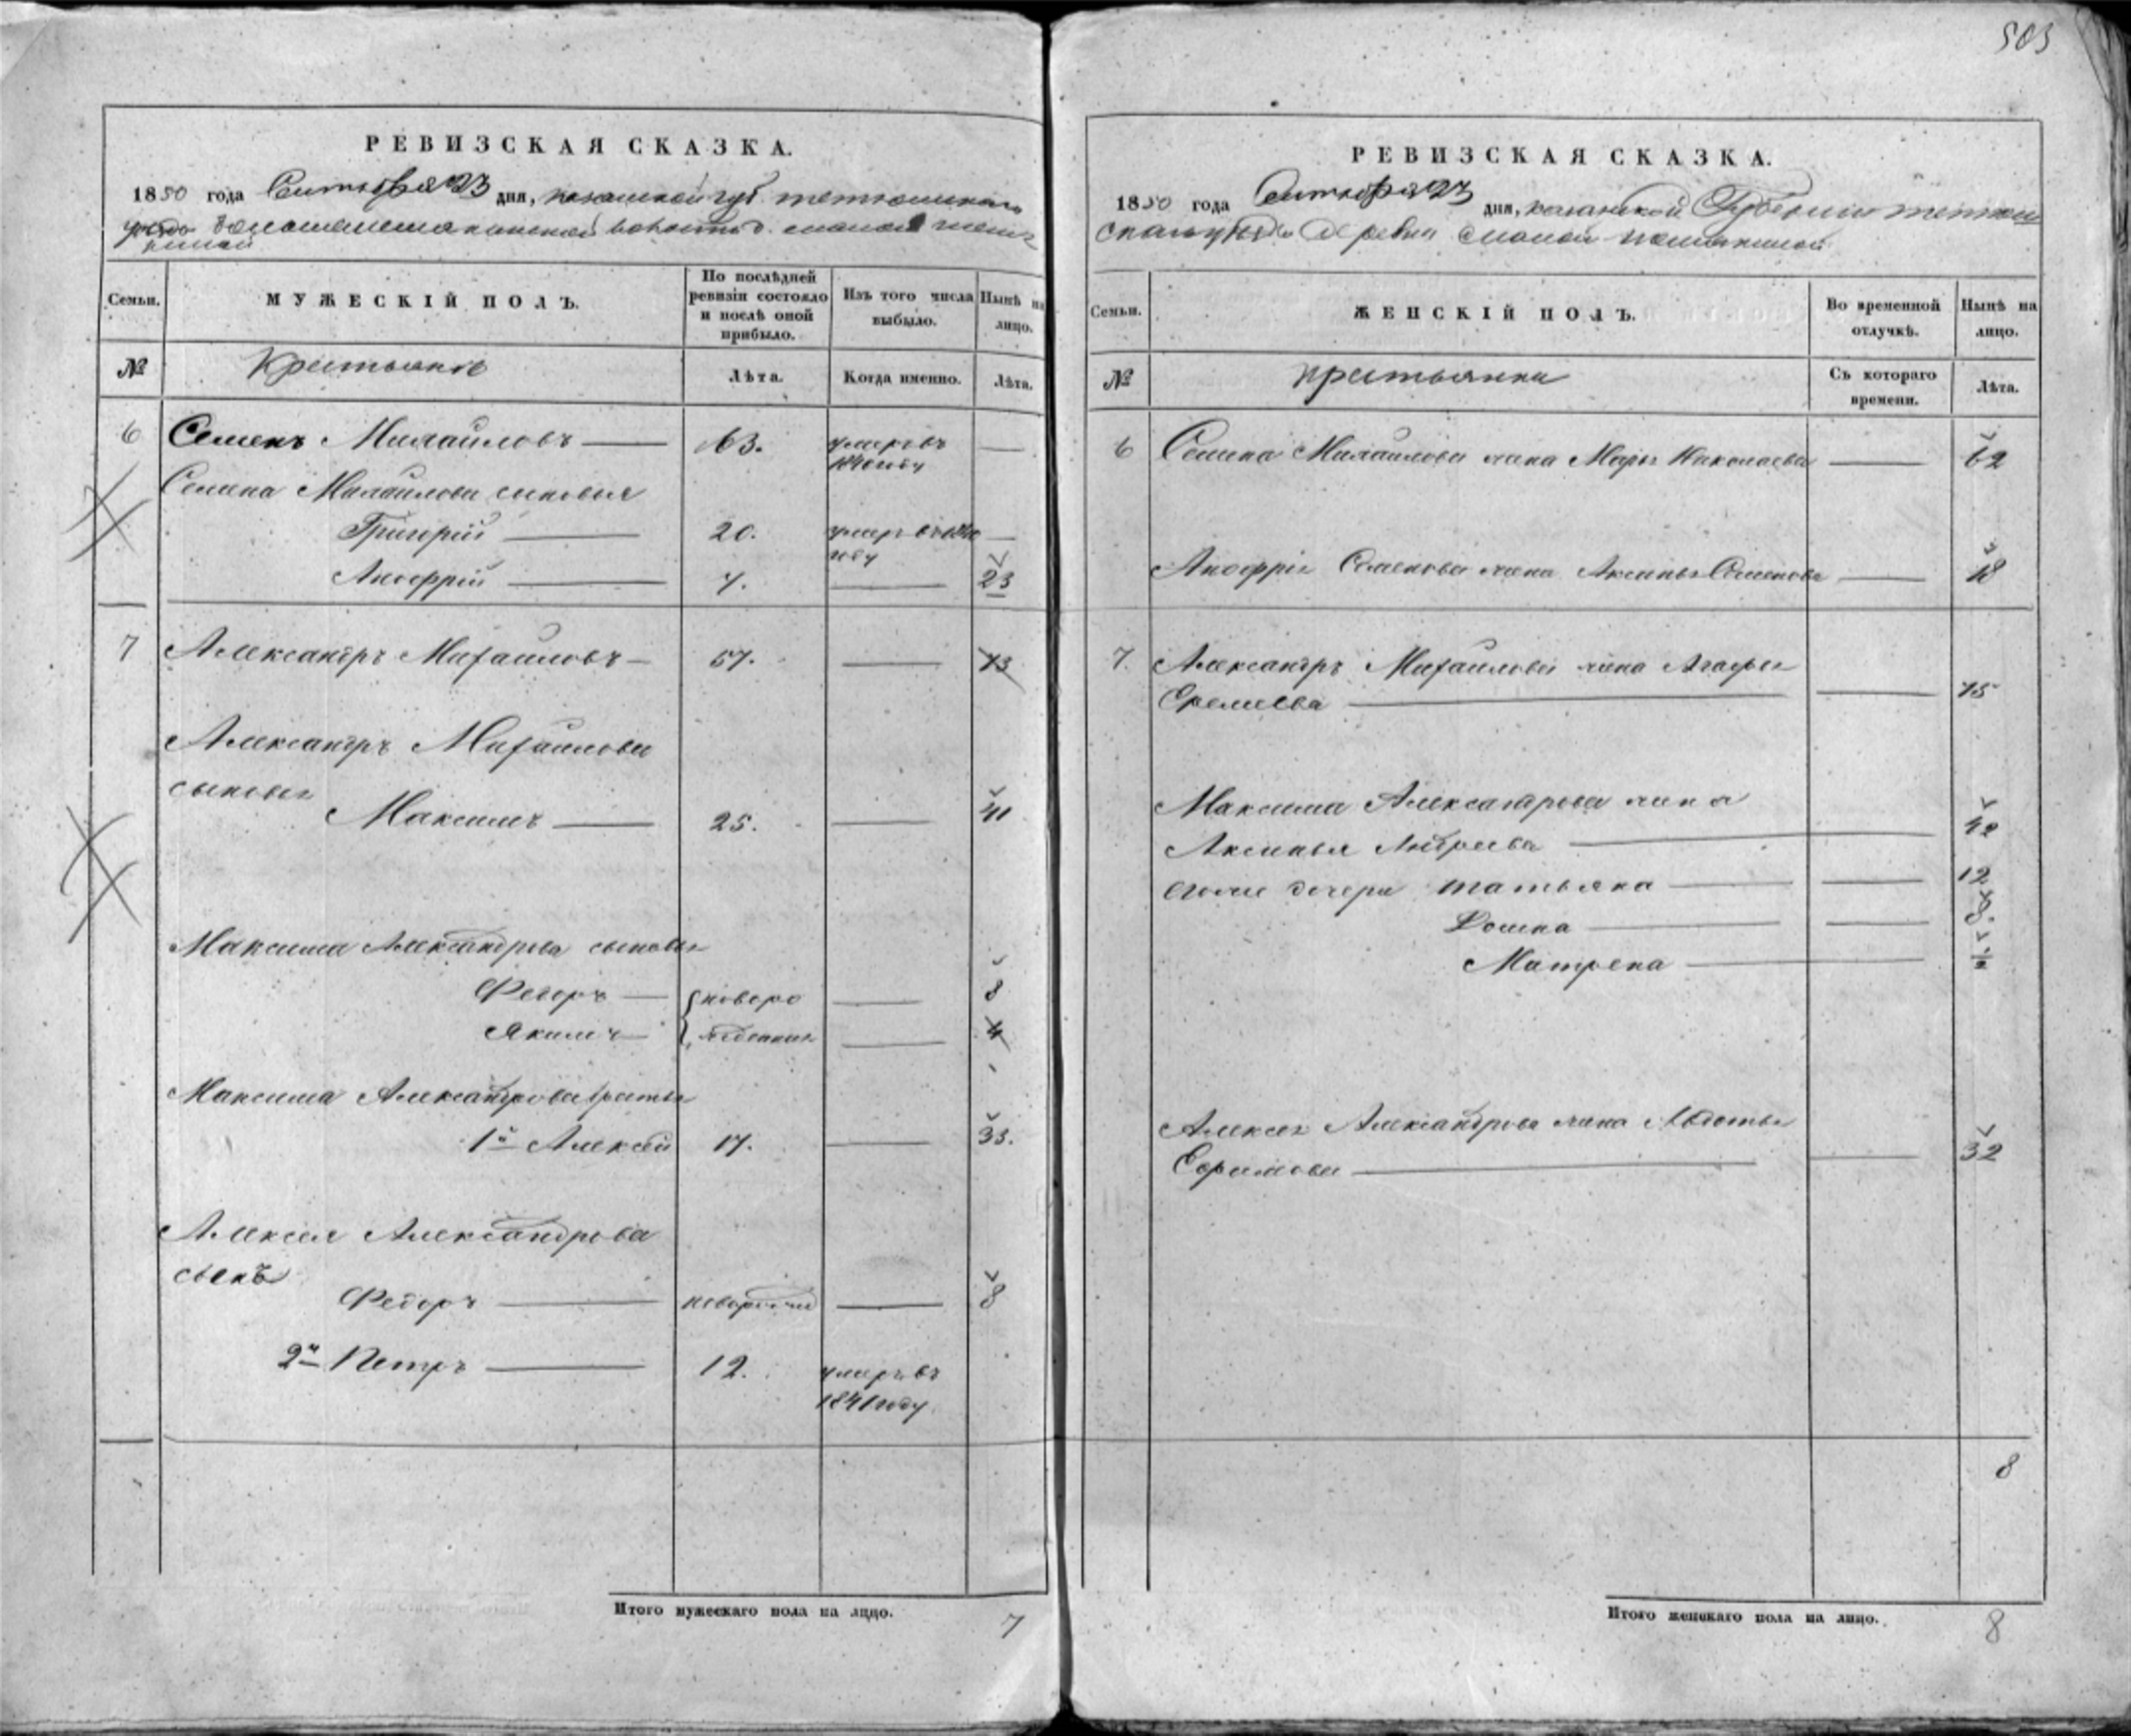 503
РЕВИЗСКАЯ СКАЗКА.
1850 года Сентября 23 дня, казанской губ. тетюшскаго
уезда волости д. малой
Семьи. МУЖЕСКІЙ ПОЛЪ. По послѣдней ревизіи состояло и послѣ оной прибыло. Изъ того числа выбыло. Нынѣ на лицо.
№ Крестьяне Лѣта. Когда именно. Лѣта.
6 Семенъ Михайловъ 63. умеръ въ
1840 году
Семена Михайлова сыновья
Григорій 20. умеръ въ
году
Анофрій 7. 23
7 Александръ Михайловъ 57. 73
Александръ Михайлова
сыновья
Максимъ 25. 41
Максима Александрова сыновья
Федоръ новоро 8
Якимъ жденные 4
Максима Александрова братья
1й Алексей 17. 33.
Алексея Александрова
сынъ
Федоръ новорожде 8
2й Петръ 12. умеръ въ
1841 году
Итого мужескаго пола на лицо. 7
РЕВИЗСКАЯ СКАЗКА.
1850 года Сентября 23 дня, казанской Губернии тетюш
скаго уезда деревни малой
Семьи. ЖЕНСКІЙ ПОЛЪ. Во временной отлучкѣ. Нынѣ на лицо.
№ крестьянки Съ котораго времени. Лѣта.
6 Семена Михайлова жена Марья Николаева 62
Анофрія Семенова жена Аксинья Семенова 18
7. Александръ Михайлова жена Агафья
Еремеева 75
Максима Александрова жена
Аксинья Андреева 42
дочери татьяна 12
Домна 8.
Матрена
Алексея Александрова жена Авдотья
Ефимова 32
8
Итого женскаго пола на лицо. 8